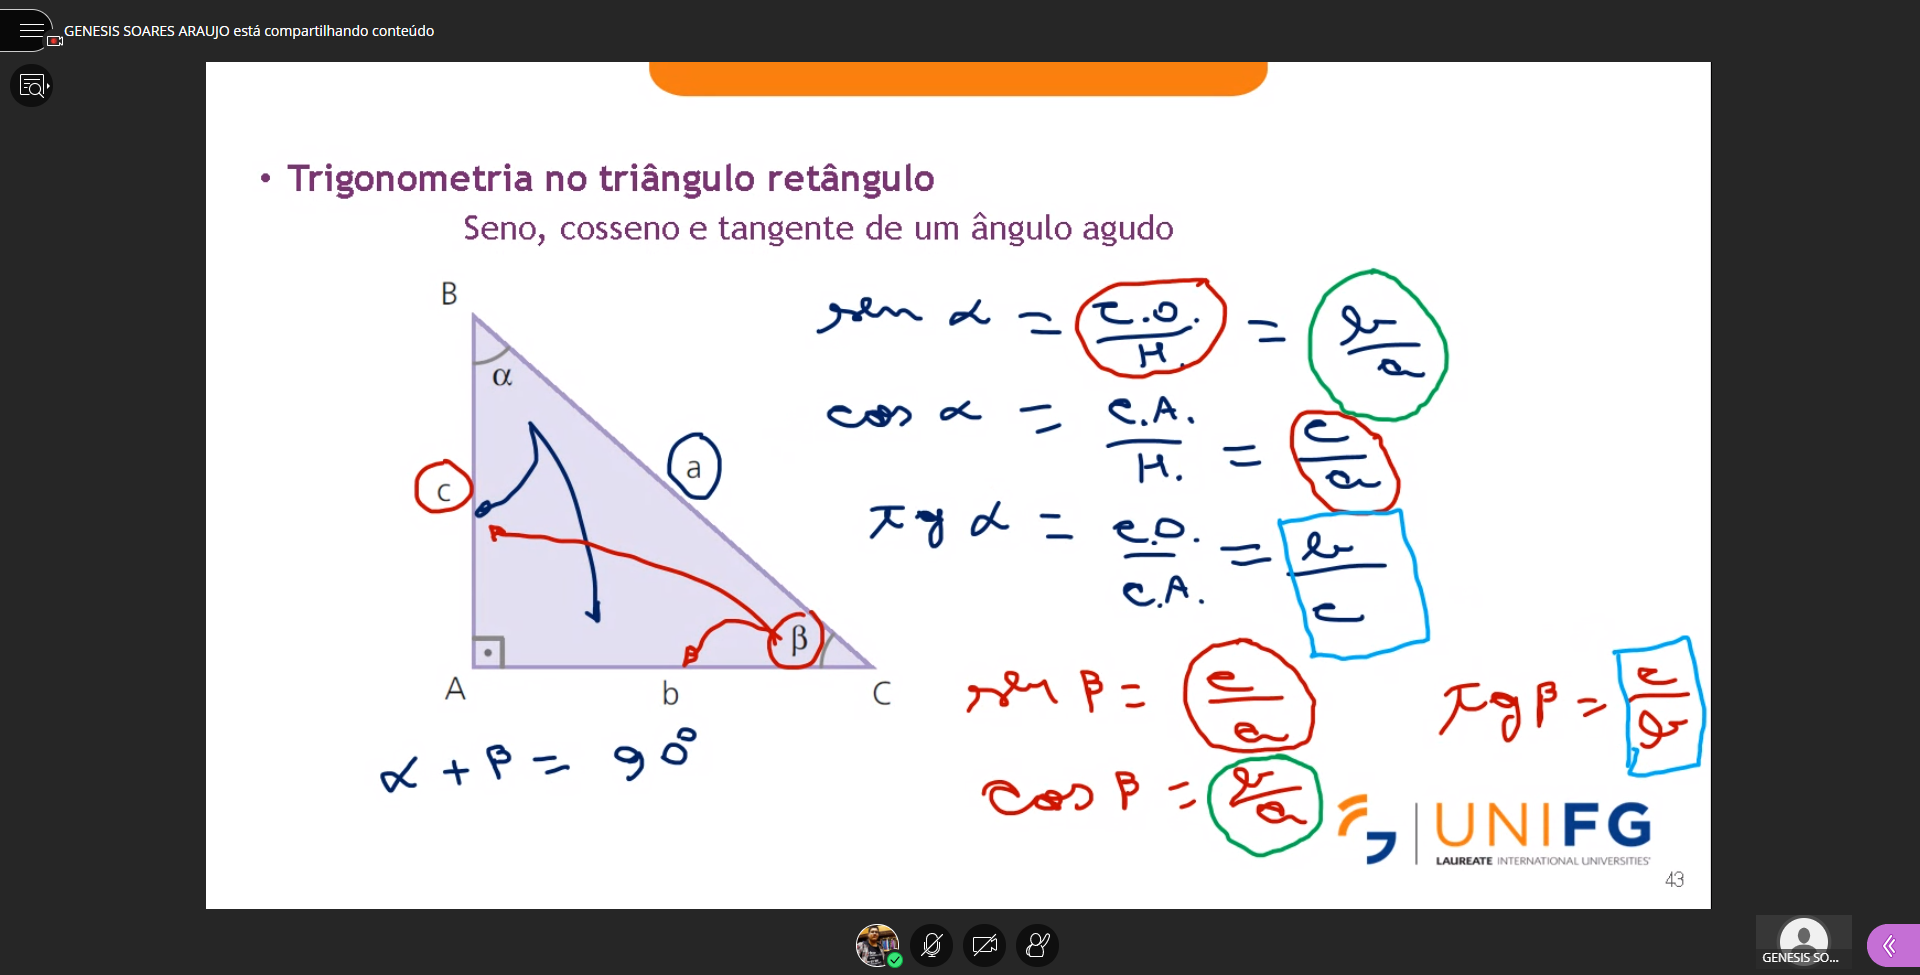 GENESIS SOARES ARAUJO está compartilhando conteúdo
• Trigonometria no triângulo retângulo
Seno, cosseno e tangente de um ângulo agudo
B
α
c
a
β
A
b
C
sen α = C.O./H. = b/a
cos α = C.A./H. = c/a
tg α = C.O./C.A. = b/c
sen β = c/a
tg β = c/b
α + β = 90°
cos β = b/a
UNIFG
LAUREATE INTERNATIONAL UNIVERSITIES
43
GENESIS SO...